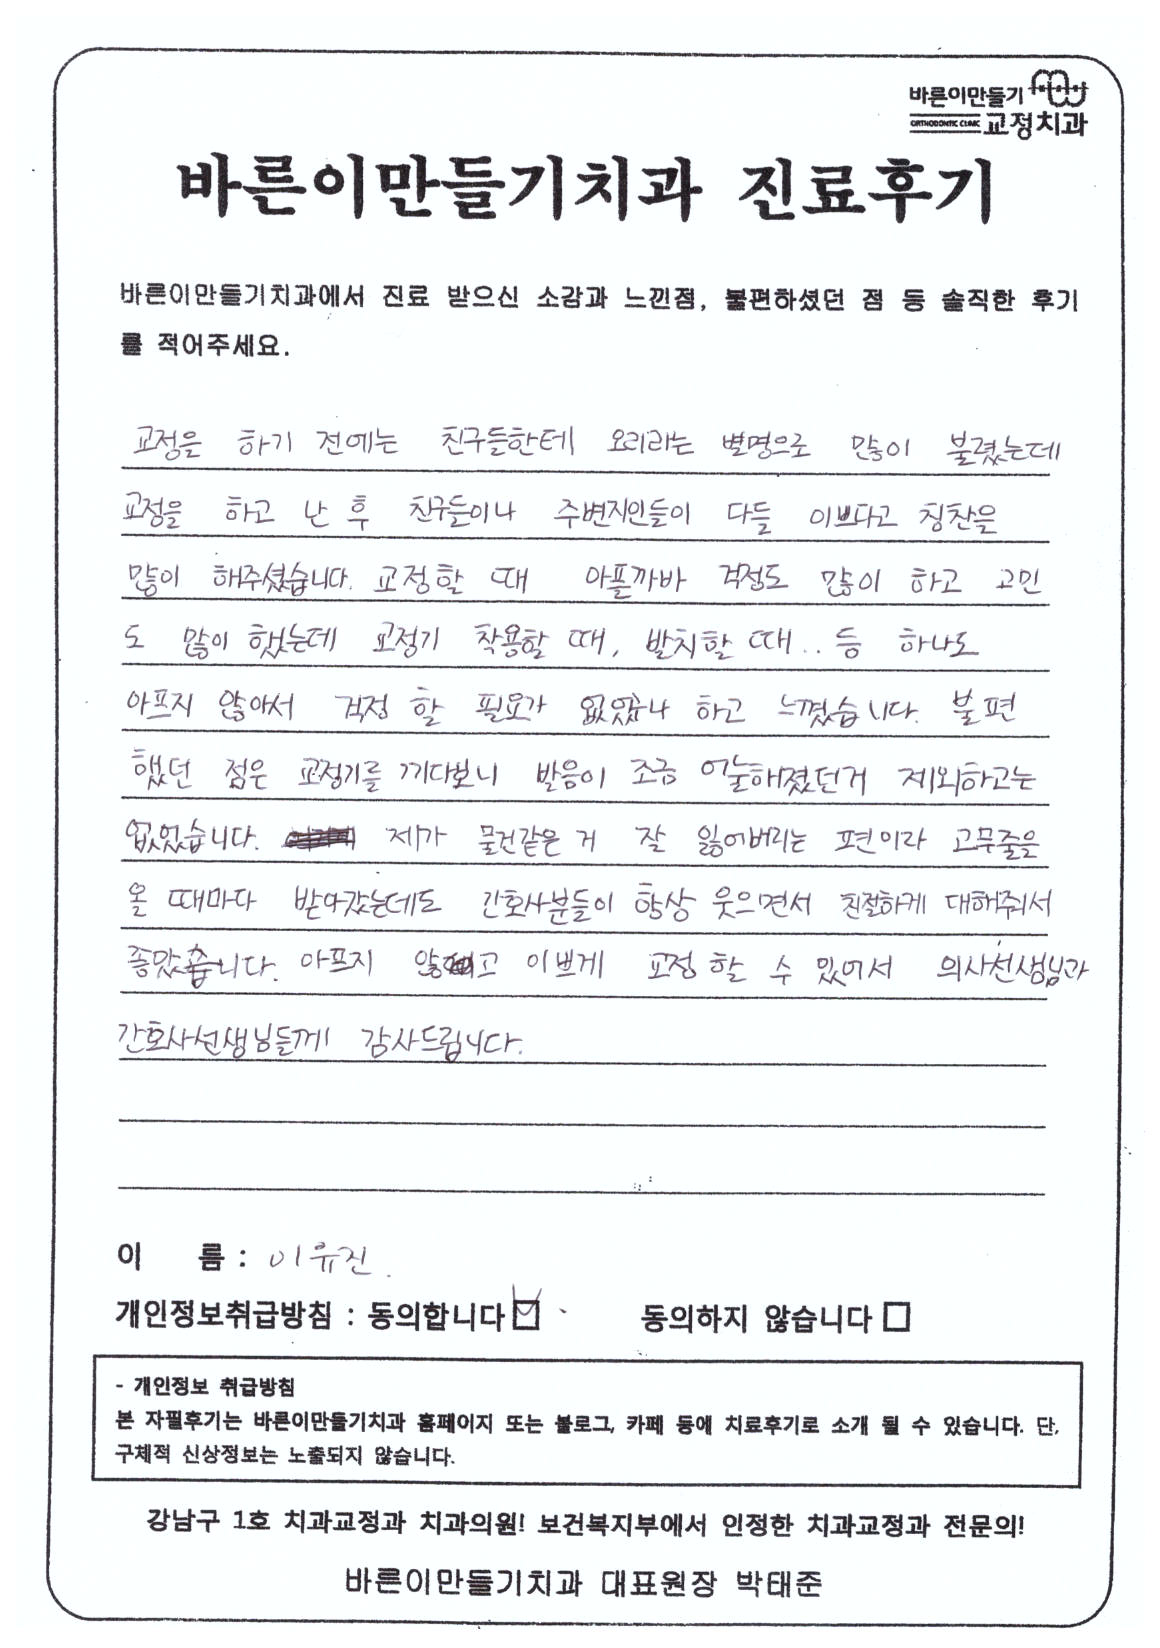 바른이만들기
ORTHODONTIC CLINIC 교정치과
바른이만들기치과 진료후기
바른이만들기치과에서 진료 받으신 소감과 느낀점, 불편하셨던 점 등 솔직한 후기
를 적어주세요.
교정을 하기 전에는 친구들한테 오리라는 별명으로 많이 불렸는데
교정을 하고 난 후 친구들이나 주변지인들이 다들 이쁘다고 칭찬을
많이 해주셨습니다. 교정할 때 아플까바 걱정도 많이 하고 고민
도 많이 했는데 교정기 착용할 때, 발치할 때.. 등 하나도
아프지 않아서 걱정 할 필요가 없었구나 하고 느꼈습니다. 불편
했던 점은 교정기를 끼다보니 발음이 조금 어눌해졌던거 제외하고는
없었습니다. 제가 물건같은 거 잘 잃어버리는 편이라 고무줄을
올 때마다 받아갔는데도 간호사분들이 항상 웃으면서 친절하게 대해줘서
좋았습니다. 아프지 않고 이쁘게 교정 할 수 있어서 의사선생님과
간호사선생님들께 감사드립니다.
이 름 : 이유진.
개인정보취급방침 : 동의합니다 동의하지 않습니다
- 개인정보 취급방침
본 자필후기는 바른이만들기치과 홈페이지 또는 블로그, 카페 등에 치료후기로 소개 될 수 있습니다. 단,
구체적 신상정보는 노출되지 않습니다.
강남구 1호 치과교정과 치과의원! 보건복지부에서 인정한 치과교정과 전문의!
바른이만들기치과 대표원장 박태준